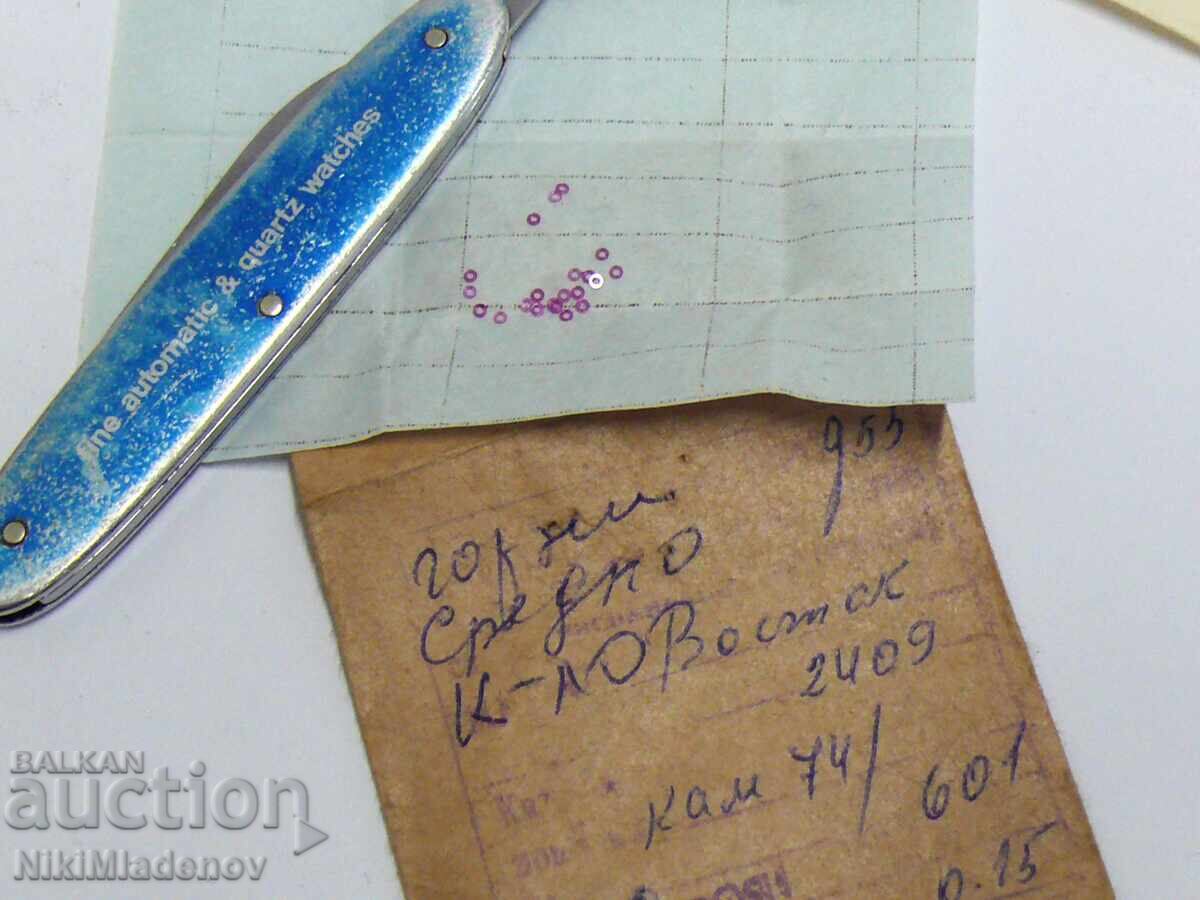 fine automatic & quartz watches
955
горни
средно
К-ло Восток
2409
кам 74/
601
0.15
BALKAN
auction
NikiMladenov